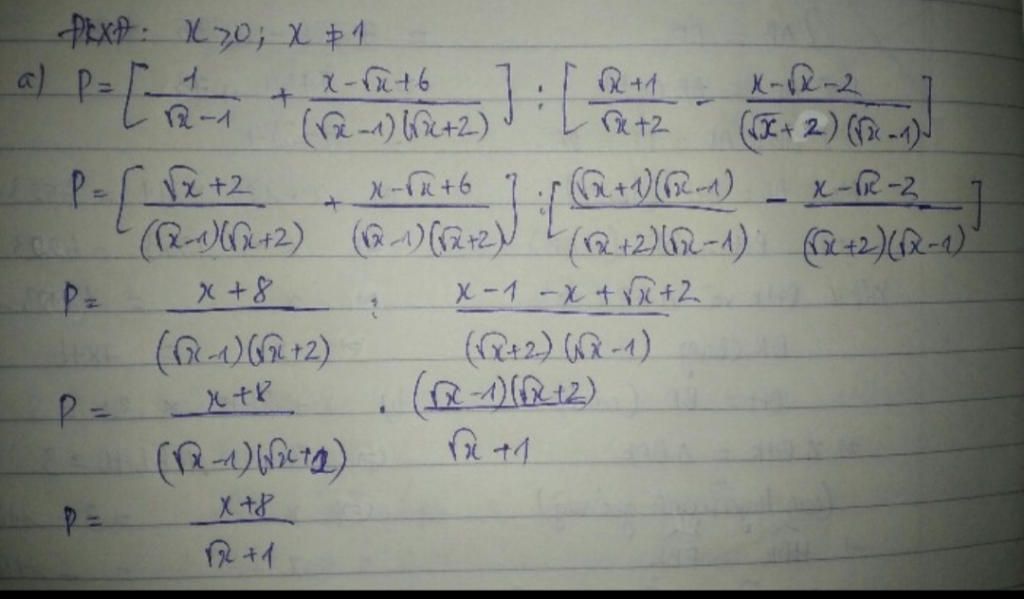 ĐKXĐ: x ≥ 0; x ≠ 1
a) P = [ 1/(√x - 1) + (x - √x + 6)/((√x - 1)(√x + 2)) ] : [ (√x + 1)/(√x + 2) - (x - √x - 2)/((√x + 2)(√x - 1)) ]
P = [ (√x + 2)/((√x - 1)(√x + 2)) + (x - √x + 6)/((√x - 1)(√x + 2)) ] : [ ((√x + 1)(√x - 1))/((√x + 2)(√x - 1)) - (x - √x - 2)/((√x + 2)(√x - 1)) ]
P = (x + 8)/((√x - 1)(√x + 2)) : (x - 1 - x + √x + 2)/((√x + 2)(√x - 1))
P = (x + 8)/((√x - 1)(√x + 2)) . ((√x - 1)(√x + 2))/(√x + 1)
P = (x + 8)/(√x + 1)